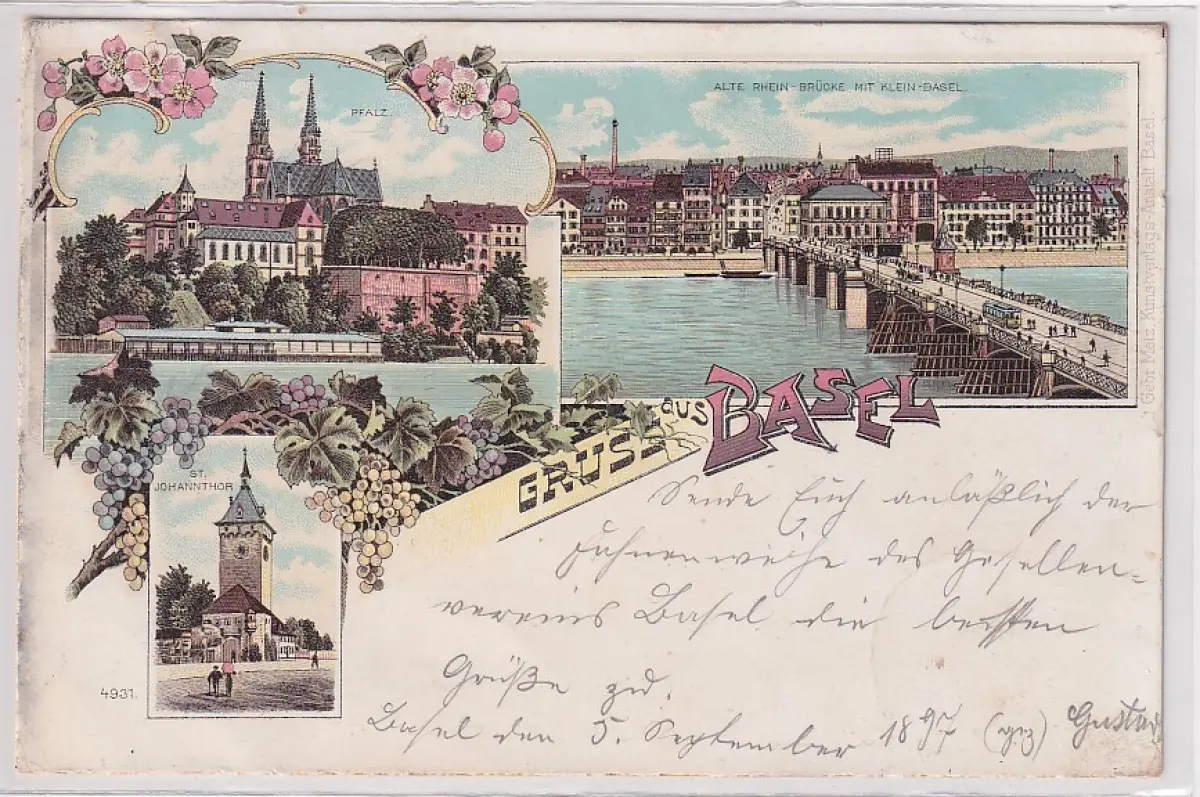 PFALZ.
ALTE RHEIN-BRÜCKE MIT KLEIN-BASEL.
ST. JOHANNTHOR
GRUSS aus BASEL
Sende Euch anläßlich der
Fahnenweihe des Gesellen-
vereins Basel die besten
Grüße
Basel den 5. September 1897 (gez) Gustav
4931.
Gebr Metz Kunstverlags-Anstalt Basel.